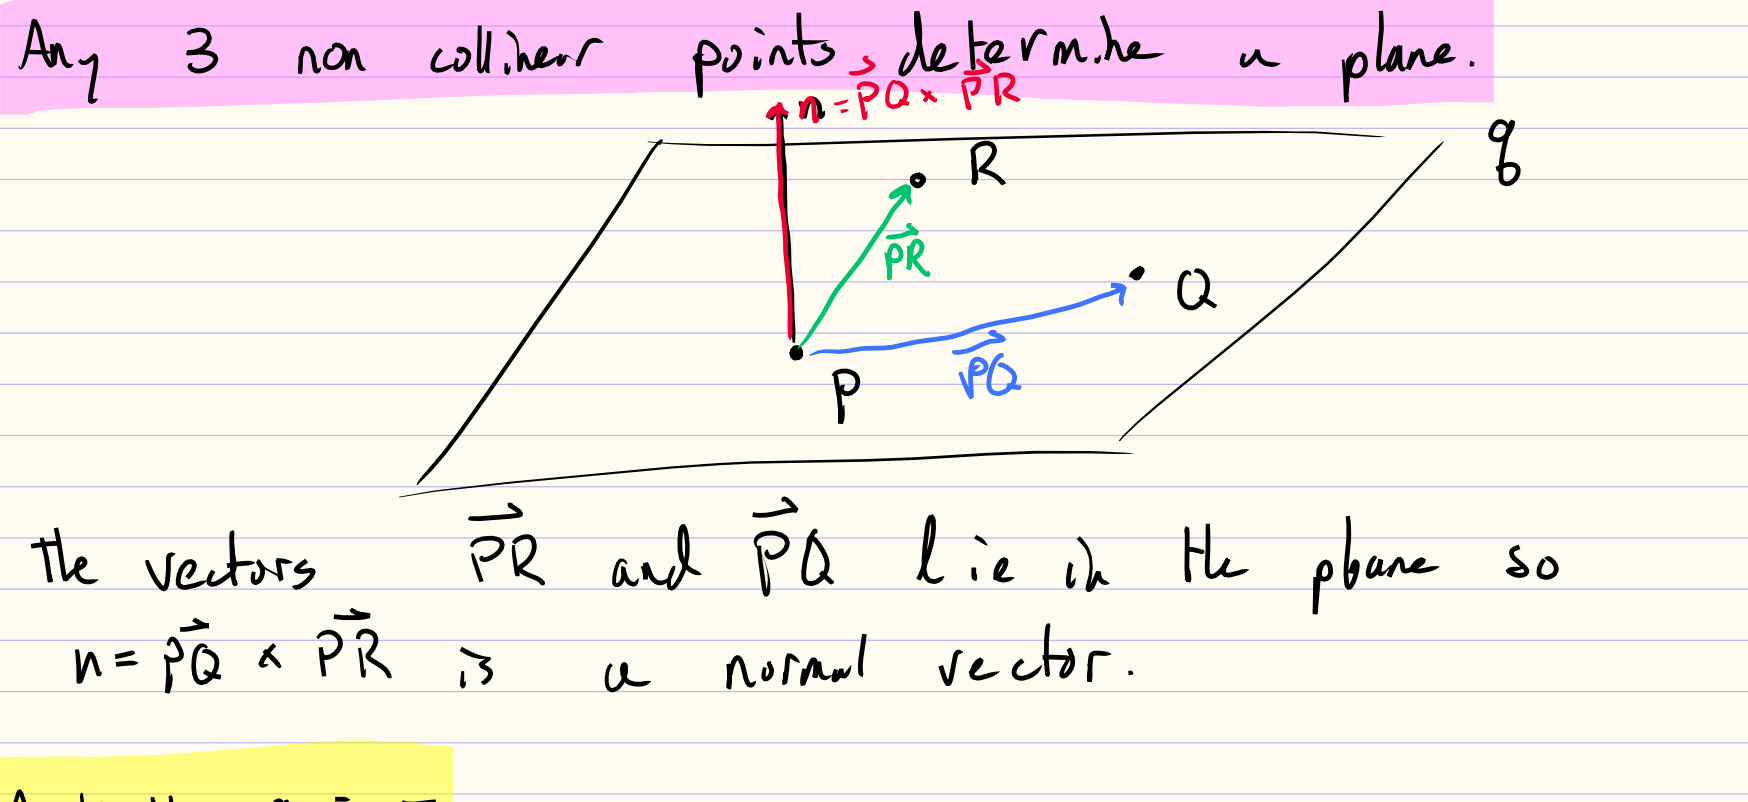 Any 3 non collinear points determine a plane.
n = PQ × PR
q
R
PR
Q
PQ
P
The vectors PR and PQ lie in the plane so
n = PQ × PR is a normal vector.